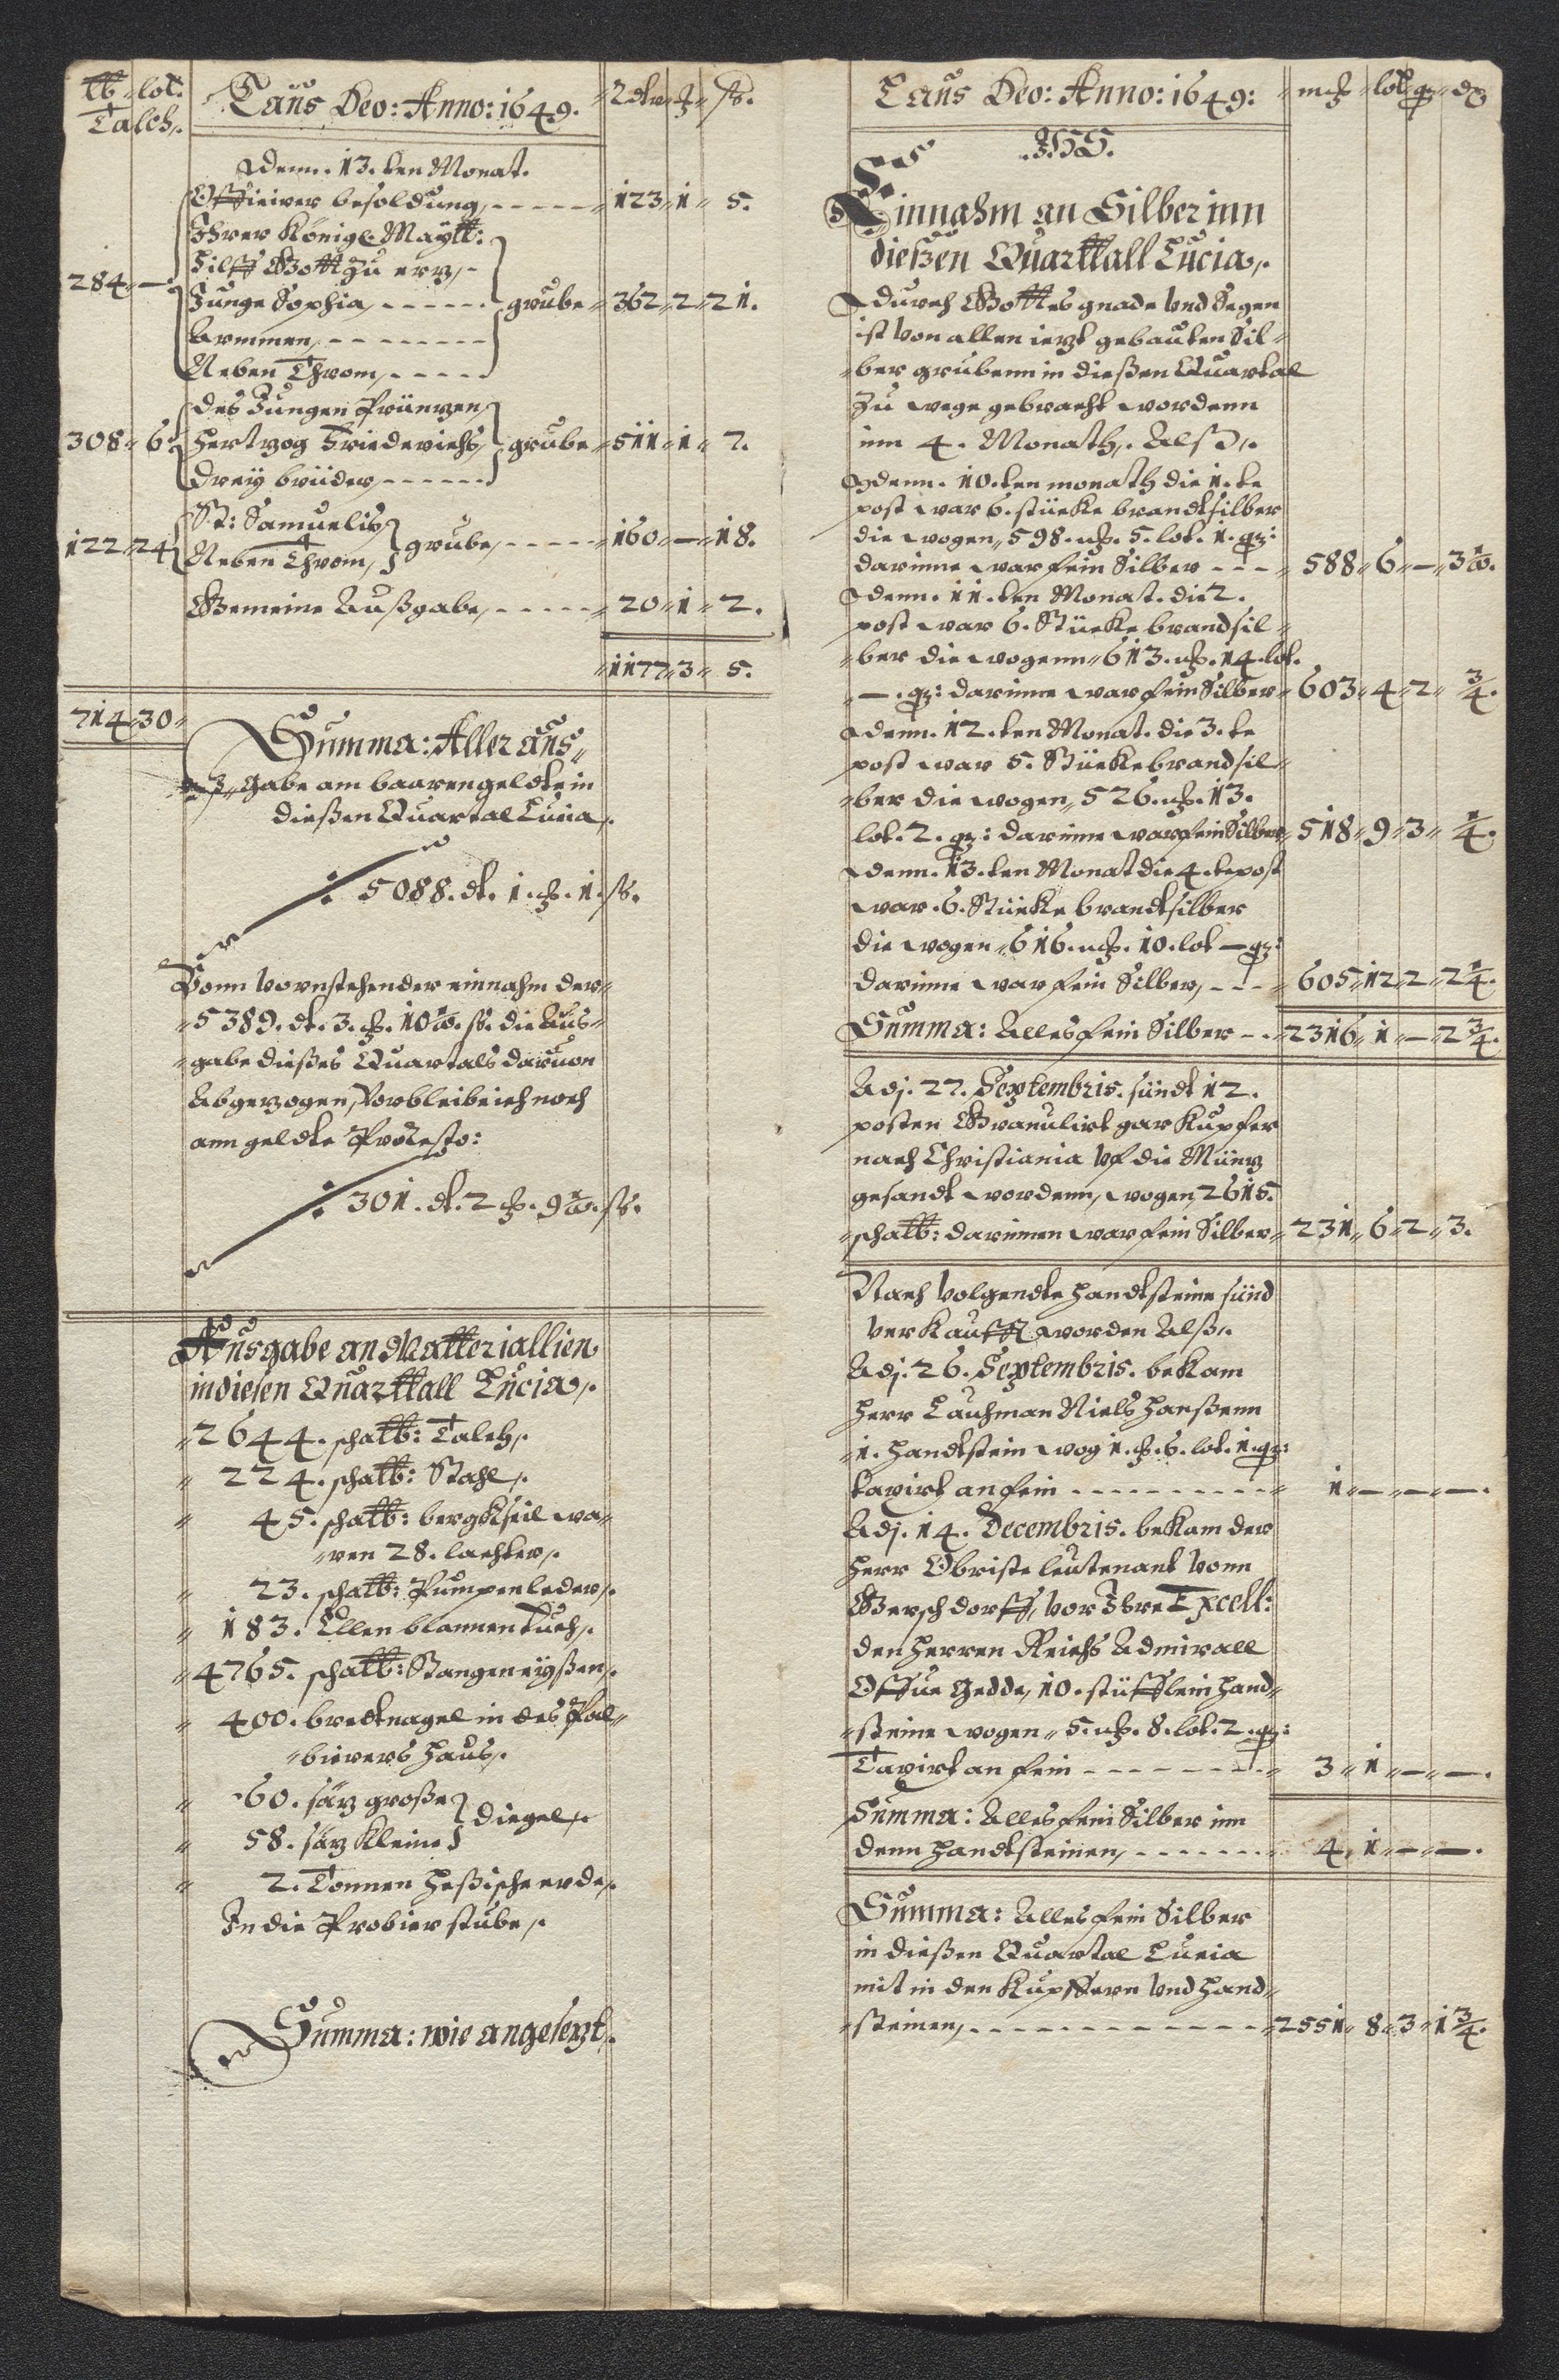 ℔ lot. Laus Deo: Anno: 1649. Rdt. ß
Talch.
denn. 13. ten Monat.
Officirer besoldung, ----- 123 1 5.
Ihrer Königl Maytt:
Hilff Gott zu erz,
284 — Junge Sophia, ------ grube 362 2 21.
Armmen, --------
Neben Throm, -----
des Jungen Printzen
308 6 Hertzog Friederichs, grube 511 1 7.
Dreij brüder, ------
St: Samuelis
122 24 Neben Throm, grube, ----- 160 — 18.
Gemeine Außgabe, ----- 20 1 2.
1177 3 5.
714 30
Summa: Aller aus-
gabe am baaren geldte in
dießen Quartal Lucia.
5088. dt. 1. 1. ß.
Vonn vornstehender einnahm der
5389. dt. 3. 10½. ß. die Aus-
gabe dießes Quartals daruon
Abgezogen, Vorbleibe ich noch
ann geldte
301. dt. 2 9½. ß.
Ausgabe an Matteriallien
in diesen Quarttall Lucia.
2644. schalb: Talch.
224. schalb: Stahl.
45. schalb: bergkseil wa-
ren 28. lachter.
23. schalb: Pumpenleder.
183. Ellen blannen tuch.
4765. schalb: Stangen eyßen.
400. bredtnagel in des Pal-
bierers Haus.
60. säz große
58. säz Kleine diegel.
2. Tonnen Heßische erde.
In die Probier stube.
Summa: wie angesetzt.
Laus Deo: Anno: 1649: lot
JHS.
Einnahm an Silber inn
dießen Quarttall Lucia.
durch Gottes gnade Vnd Segen
ist Von allen iezt gebauten Sil-
ber grubenn in dießen Quartal
Zu wege gebracht wordenn
inn 4. Monath, Alß.
denn. 10. ten monath die 1. te
post war 6. stücke brandtsilber
die wogen, 598. 5. lot. 1.
darinne war fein Silber --- 588 6 — 3½.
denn. 11. ten Monat. die 2.
post war 6. Stücke brandsil-
ber die wogenn 613. 14. lot.
—. darinne war fein Silber 603 4 2 ¾.
denn. 12. ten Monat. die 3. te
post war 5. Stücke brandsil-
ber die wogen, 526. 13.
lot. 2. darinne war fein Silber 518 9 3 ¼.
denn. 13. ten Monat die 4. te post
war. 6. Stücke brandtsilber
die wogen, 616. 10. lot —
darinne war fein Silber, --- 605 12 2 2¼.
Summa: Alles fein Silber -- 2316 1 — 2¾.
Adj. 22. Septembris. sündt 12.
posten Granulirt gar Kupfer
nach Christiania vf die Müntz
gesandt wordenn, wogen, 2615.
schalb: darinnen war fein Silber 231 6 2 3.
Nach Volgendte handtsteine sünd
Verkaufft worden Alß.
Adj. 26. Septembris. bekam
Herr Lauhman Niels Hanßenn
1. handtstein wog 1. 6. lot. 1.
taxirt an fein ---------- 1 — — —.
Adj. 14. Decembris. bekam der
Herr Obriste leutenant Vonn
Gerschdorff, Vor Ihre Excell:
den Herren Reichs Admirall
Offue Gedde, 10. stüfflein Hand-
steine wogen 5. 8. lot. 2.
Taxirt an fein -------- 3 1 — —.
Summa: Alles fein Silber inn
denn handtsteinen, ------- 4 1 — —.
Summa: Alles fein Silber
in dießen Quartal Lucia
mit in den Kupffern Vnd Hand-
steinen, ------------ 2551 8 3 1¾.